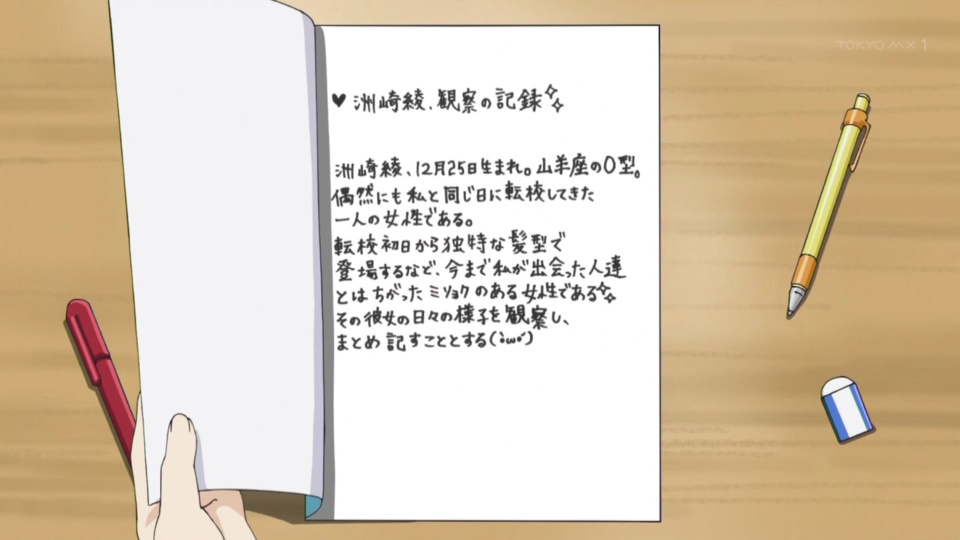 TOKYO MX 1
♥洲崎綾、観察の記録✧✧
洲崎綾、12月25日生まれ。山羊座のO型。
偶然にも私と同じ日に転校してきた
一人の女性である。
転校初日から独特な髪型で
登場するなど、今まで私が出会った人達
とはちがったミリョクのある女性である✧✧
その彼女の日々の様子を観察し、
まとめ記すこととする(`・ω・´)